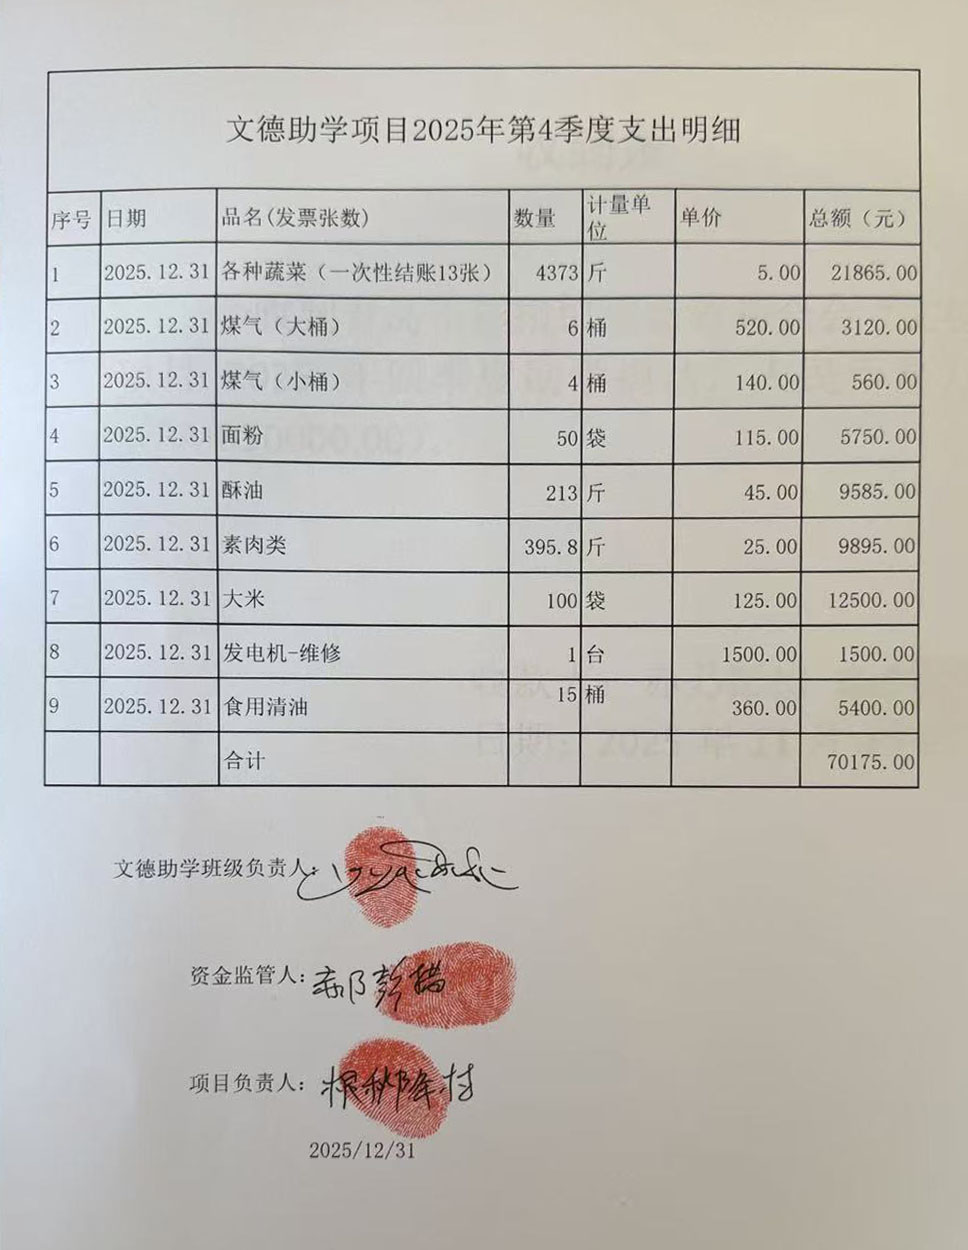 文德助学项目2025年第4季度支出明细
序号 日期 品名(发票张数) 数量 计量单位 单价 总额（元）
1 2025.12.31 各种蔬菜（一次性结账13张） 4373 斤 5.00 21865.00
2 2025.12.31 煤气（大桶） 6 桶 520.00 3120.00
3 2025.12.31 煤气（小桶） 4 桶 140.00 560.00
4 2025.12.31 面粉 50 袋 115.00 5750.00
5 2025.12.31 酥油 213 斤 45.00 9585.00
6 2025.12.31 素肉类 395.8 斤 25.00 9895.00
7 2025.12.31 大米 100 袋 125.00 12500.00
8 2025.12.31 发电机-维修 1 台 1500.00 1500.00
9 2025.12.31 食用清油 15 桶 360.00 5400.00
合计 70175.00
文德助学班级负责人:
资金监管人:
项目负责人:
2025/12/31